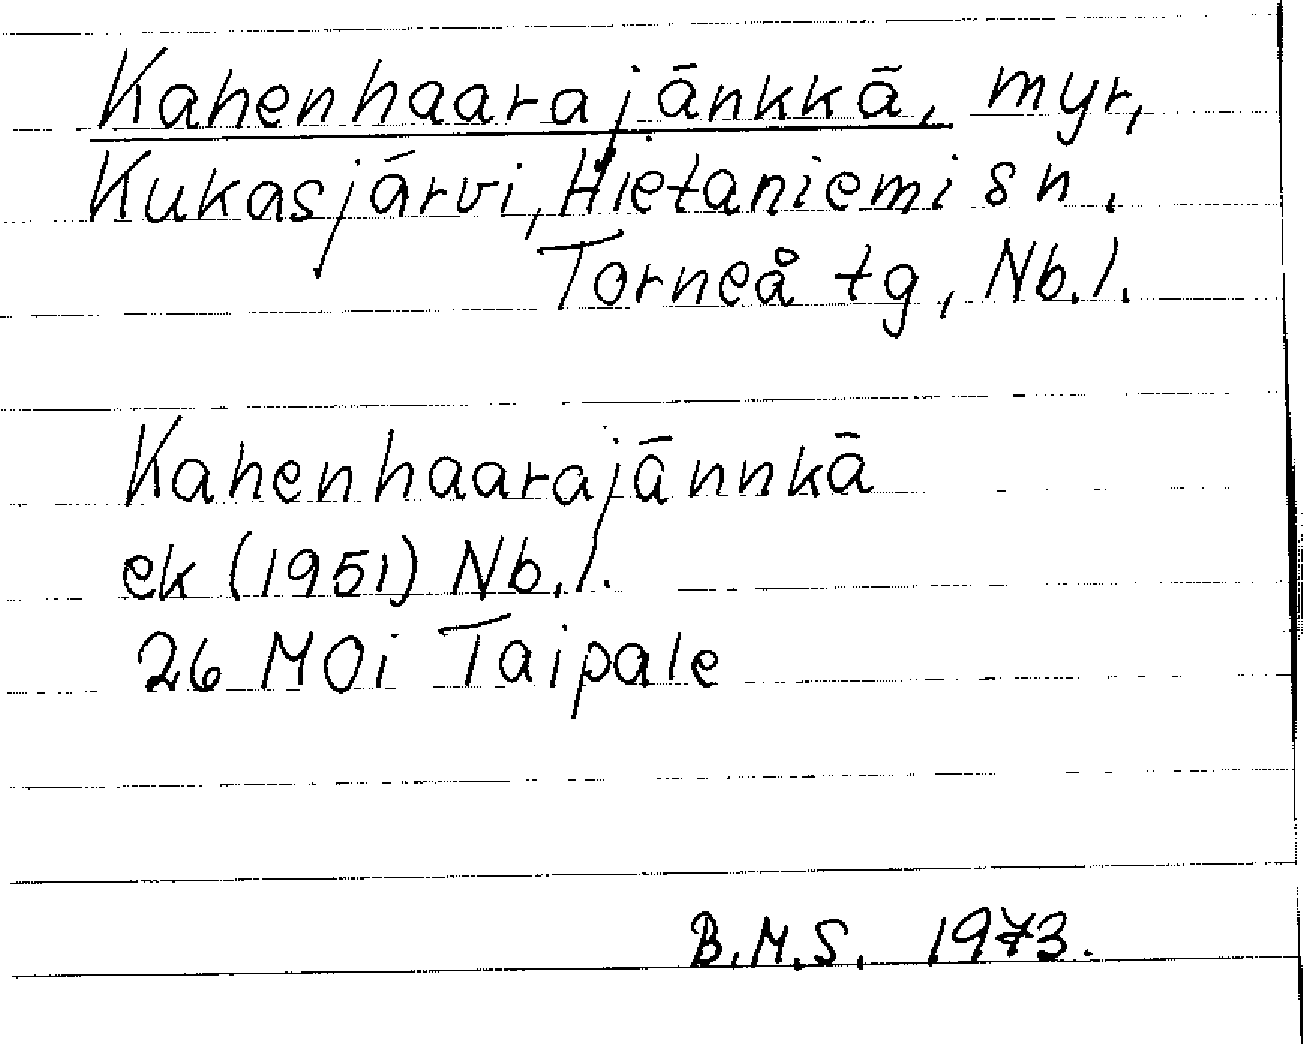 Kahenhaarajänkkä, myr,
Kukasjärvi, Hietaniemi sn.
Torneå tg, Nb.l.
Kahenhaarajännkä
ek (1951) Nb.l.
26 M0i Taipale
B.M.S. 1973.